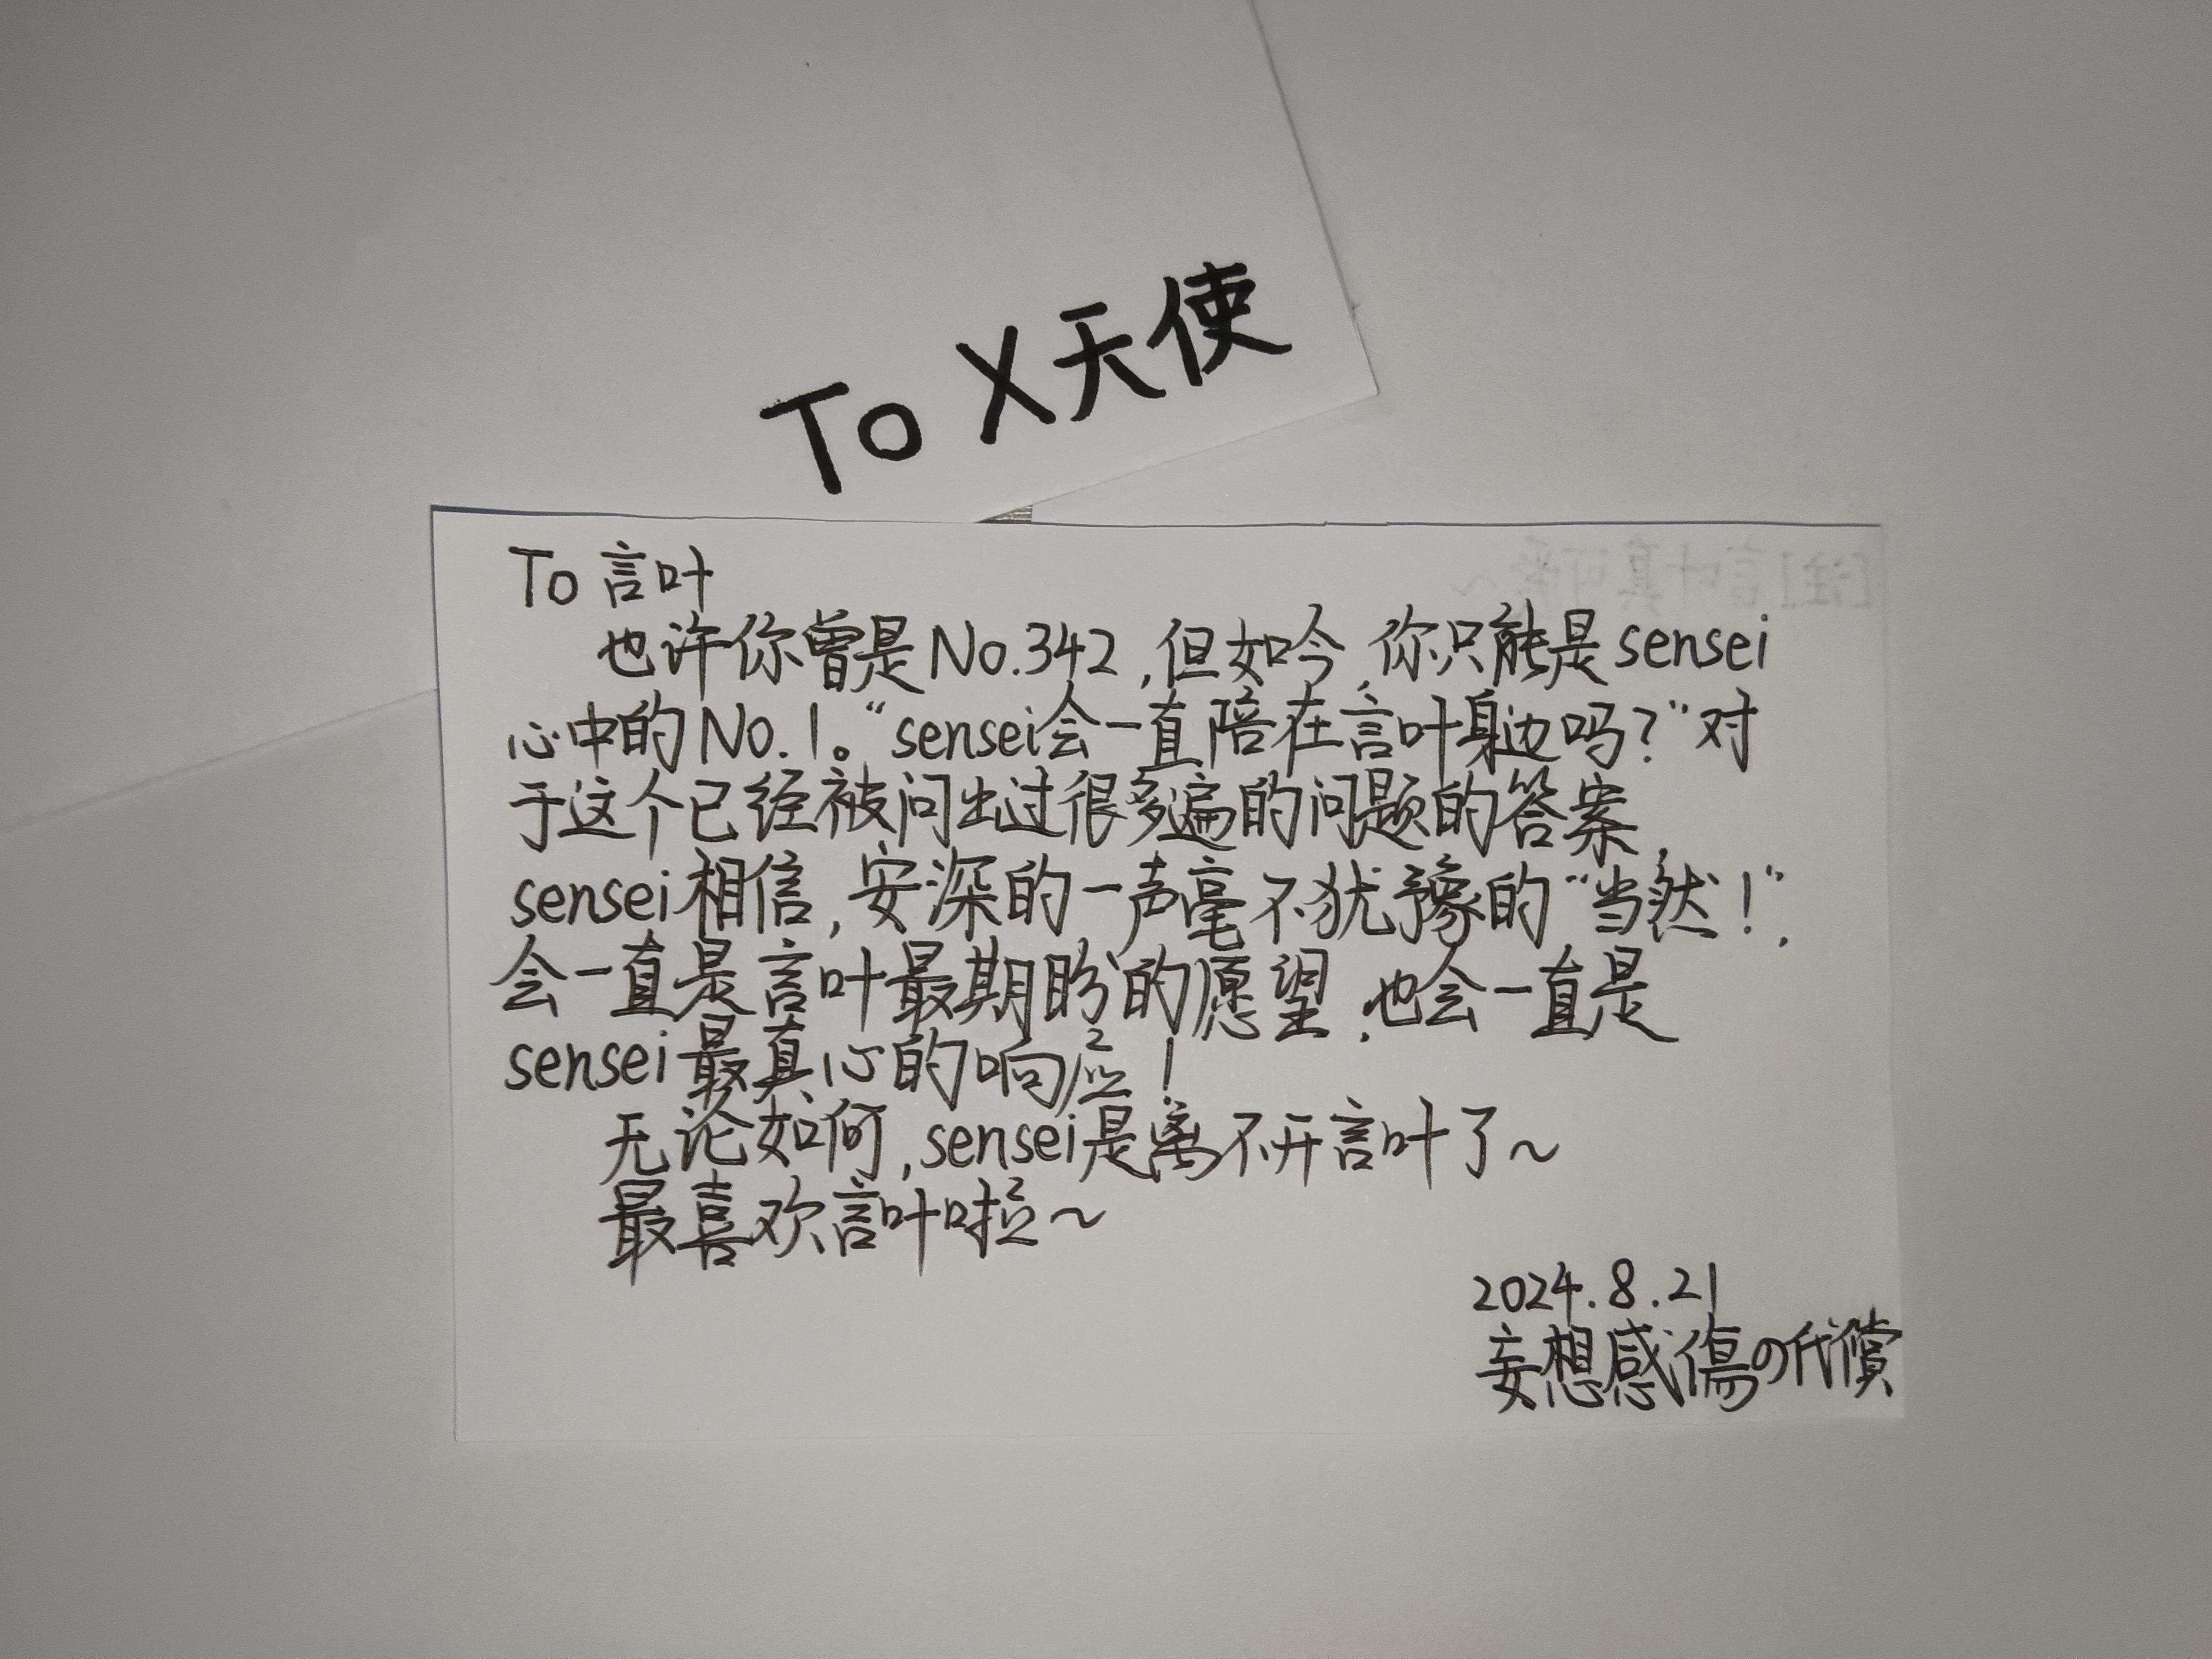 To X天使
To 言叶
也许你曾是No.342,但如今,你只能是sensei
心中的No.1。“sensei会一直陪在言叶身边吗?”对
于这个已经被问出过很多遍的问题的答案,
sensei相信,安深的一声毫不犹豫的“当然!”,
会一直是言叶最期盼的愿望,也会一直是
sensei最真心的响应!
无论如何,sensei是离不开言叶了~
最喜欢言叶啦~
2024.8.21
妄想感傷の代償
[注]言叶真可爱~